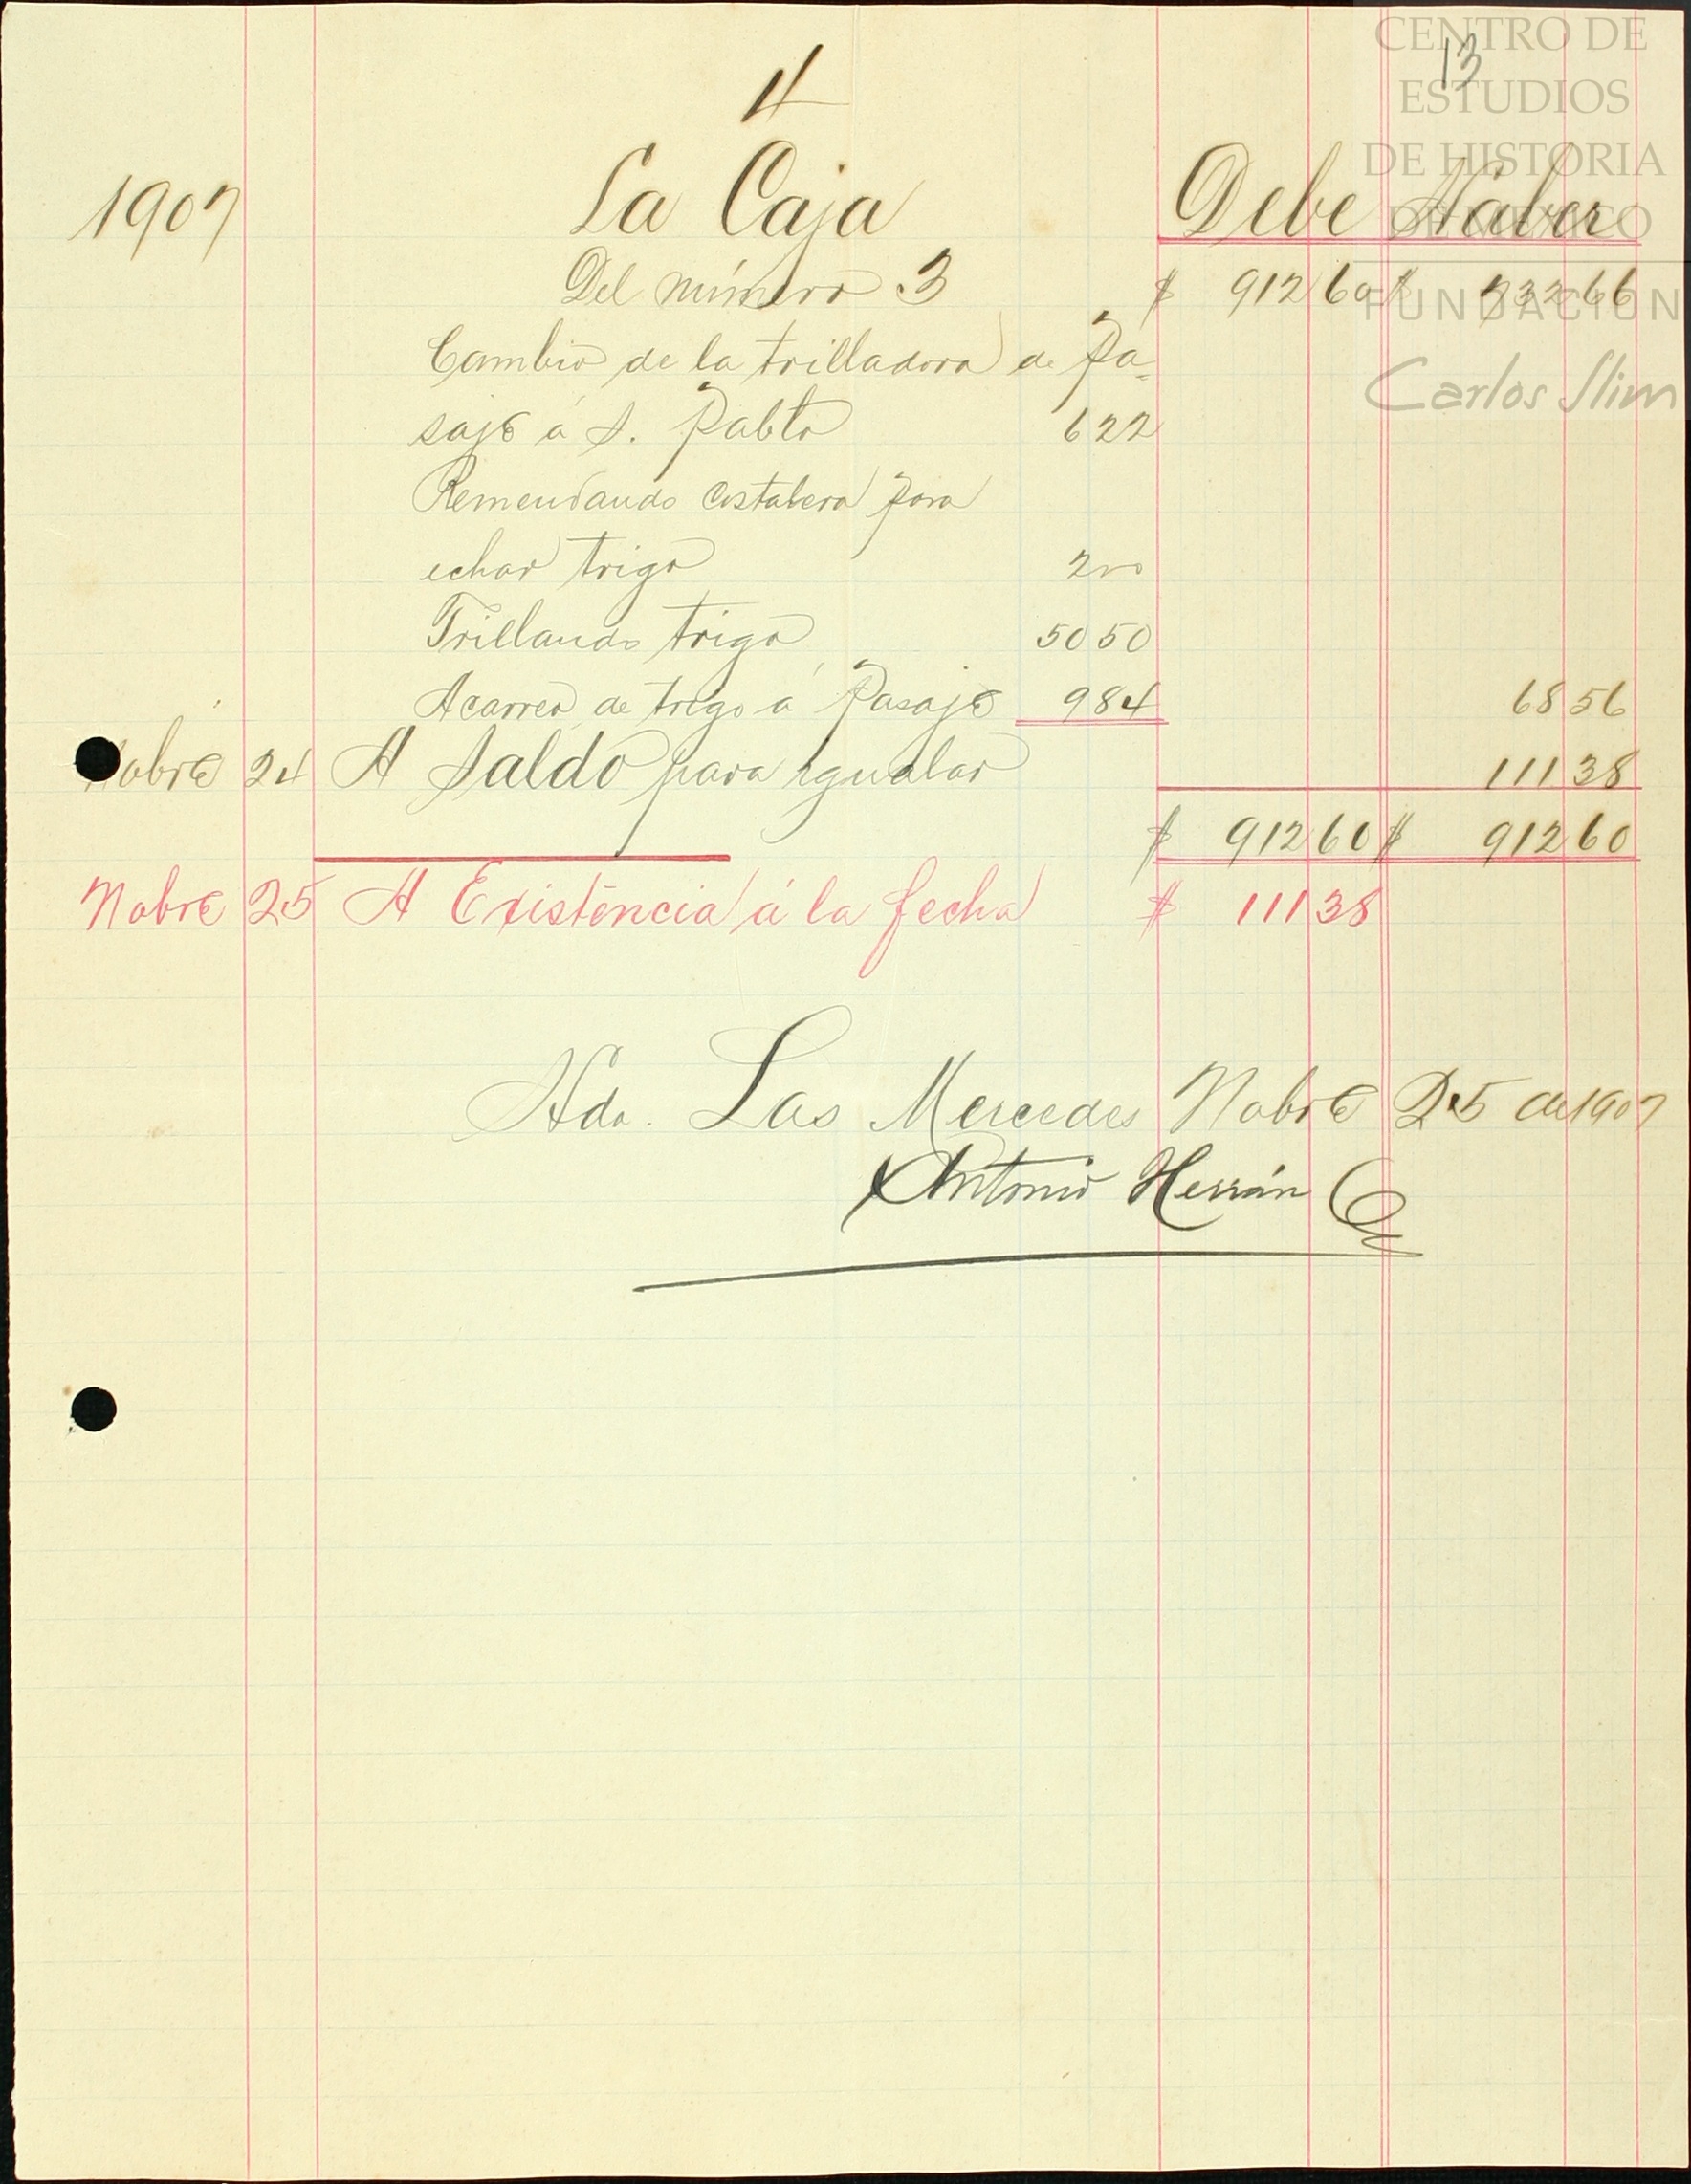 4
13
CENTRO DE
ESTUDIOS
DE HISTORIA
DE MÉXICO
FUNDACIÓN
Carlos Slim
1907 La Caja Debe Haber
Del número 3 $ 912 60 $ 732 66
Cambio de la trilladora de Pa-
saje á S. Pablo 6 22
Remendando costalera para
echar trigo 2 00
Trillando trigo 50 50
Acarreo de trigo á Pasaje 9 84 68 56
Nobre 24 A Saldo para igualar 111 38
$ 912 60 $ 912 60
Nobre 25 A Existencia á la fecha $ 111 38
Hda. Las Mercedes Nobre 25 de 1907
Antonio Herrán